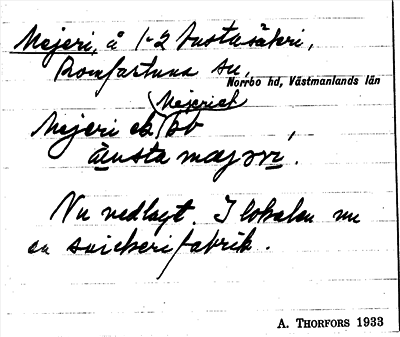 Mejeri, å 1-2 Austasäkri,
Romfartuna sn,
Norrbo hd, Västmanlands län
Mejeriet
Mejeri
Nu nedlagt. I lokalen nu
en snickerifabrik.
A. THORFORS 1933